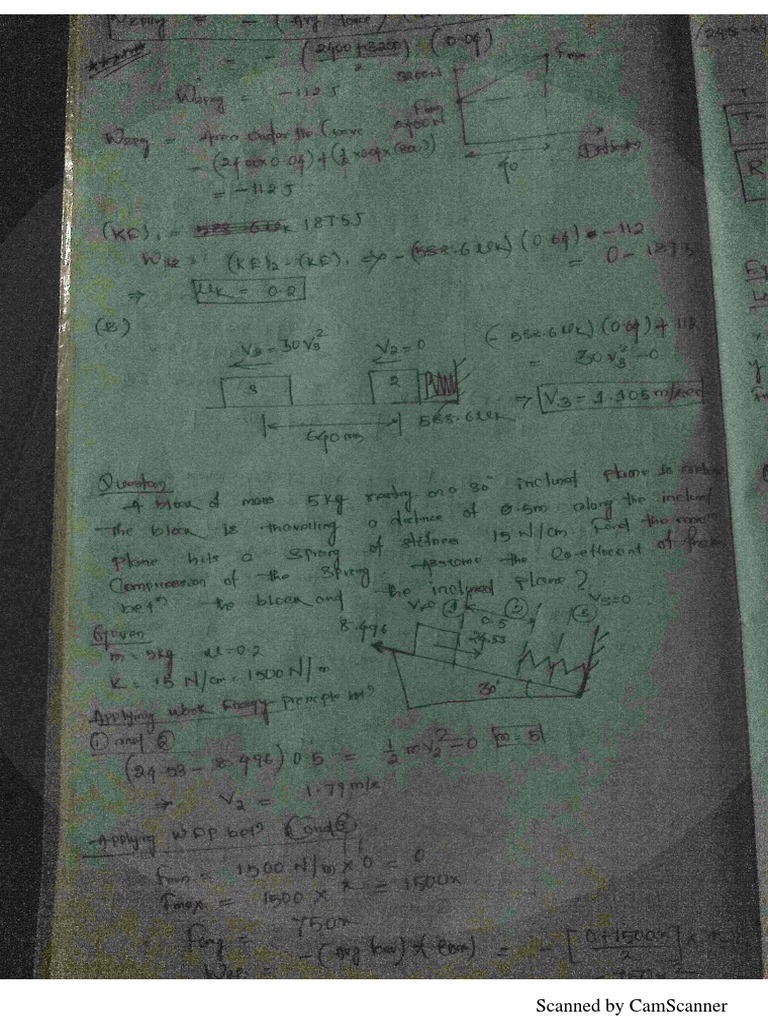 Wspring = - (Avg force)
= - (2400+3200)/2 (0.04)
Wspring = -112 J
Wspring = Area under the Curve
- (2400x0.04) + (1/2 x 0.04 x (800))
= -112 J
3200N
Fmax
2400N
40
(KE)1 = 1875J
W1-2 = (KE)2 - (KE)1 => - (588.6 μk) (0.64) - 112 = 0 - 1875
=> μk = 0.2
(B)
V3 = 30V3²
V2 = 0
(-588.6 μk)(0.64) + 112
= 30V3² - 0
3
2
=> V3 = 1.105 m/sec
640 mm
588.6 μk
Question
A block of mass 5 kg resting on a 30° inclined plane is
The block is travelling a distance of 0.5m along the inclined
plane hits a Spring of stiffness 15 N/cm. Find the max^m
Compression of the Spring. Assume the Co-efficient of
bet^n the block and the inclined plane?
Given
m = 5kg μ = 0.2
K = 15 N/cm = 1500 N/m
8.496
V1=0
1
2
3
V3=0
0.5
24.53
30°
Applying Work Energy principle bet^n
① and ②
(24.53 - 8.496) 0.5 = 1/2 mV2² - 0 m = 5
=> V2 = 1.79 m/s
Applying WEP bet^n
Fmin = 1500 N/m x 0 = 0
Fmax = 1500 x x = 1500x
Favg = 750x
Wsp. = - (Avg force) x = - [0+1500x / 2] x